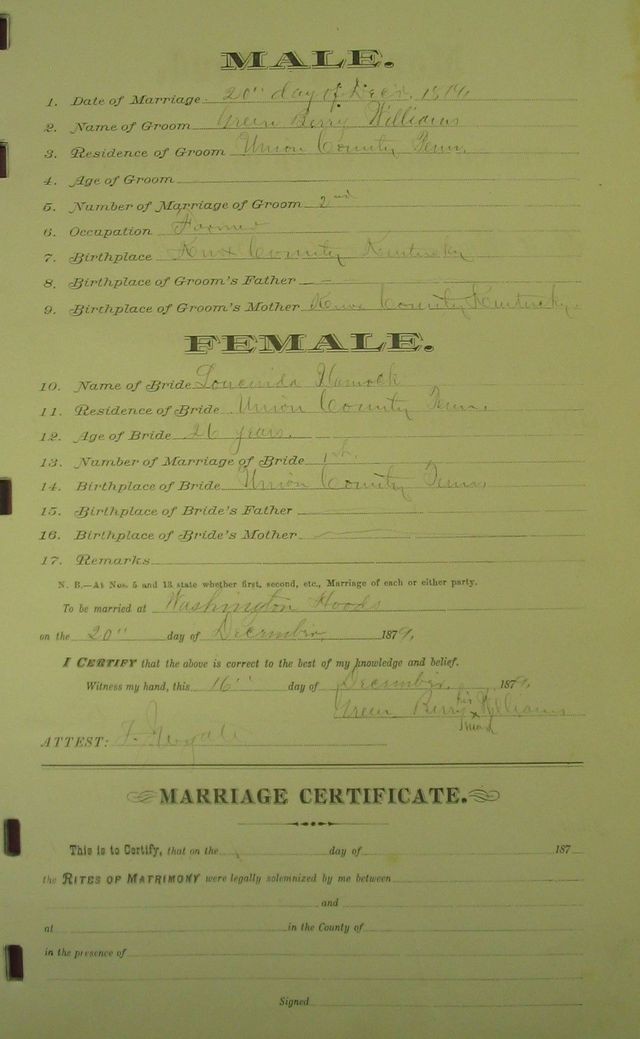 MALE.
1. Date of Marriage 20" day of Dec'r, 1879,
2. Name of Groom Green Berry Williams
3. Residence of Groom Union County Tenn,
4. Age of Groom
5. Number of Marriage of Groom 2nd
6. Occupation Farmer
7. Birthplace Knox County Kentucky
8. Birthplace of Groom's Father
9. Birthplace of Groom's Mother Knox County Kentucky.
FEMALE.
10. Name of Bride
11. Residence of Bride Union County Tenn.
12. Age of Bride 26 years.
13. Number of Marriage of Bride 1st.
14. Birthplace of Bride Union County Tenn,
15. Birthplace of Bride's Father
16. Birthplace of Bride's Mother
17. Remarks
N. B.—At Nos. 5 and 13 state whether first, second, etc., Marriage of each or either party.
To be married at Washington Hoods
on the 20" day of December, 1879,
I CERTIFY that the above is correct to the best of my knowledge and belief.
Witness my hand, this 16" day of December, 1879,
Green Berry his x mark Williams
ATTEST:
MARRIAGE CERTIFICATE.
This is to Certify, that on the day of 187
the RITES OF MATRIMONY were legally solemnized by me between
and
at in the County of
in the presence of
Signed